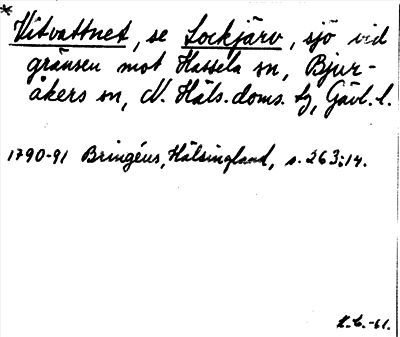 * Vitvattnet, se Lockjärv, sjö vid
gränsen mot Hassela sn, Bjur-
åkers sn, N. Häls. doms. tg, Gävl. l.
1790-91 Bringéus, Hälsingland, s. 263:14.
K.C. -61.